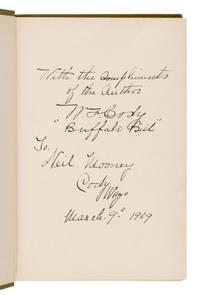 With the compliments
of the Author
W. F. Cody
"Buffalo Bill"
To.
Neil. Mooney
Cody
Wyo
March. 9th 1909